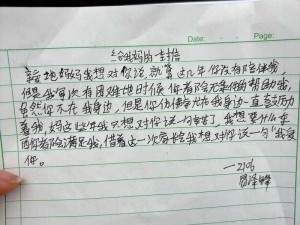 Date:
给我妈的一封信
亲爱地妈妈我想对你说就算这几年你没有陪伴我,
但是我每次有困难地时候你都会无条件的帮助我,
虽然你不在我身边,但是你仿佛每次在我身边一直鼓励
着我,妈这些年我只想对你说句辛苦了,我想要什么东
西你都会满足我,借着这一次家长会我想对你说一句“我爱
你。
一2106